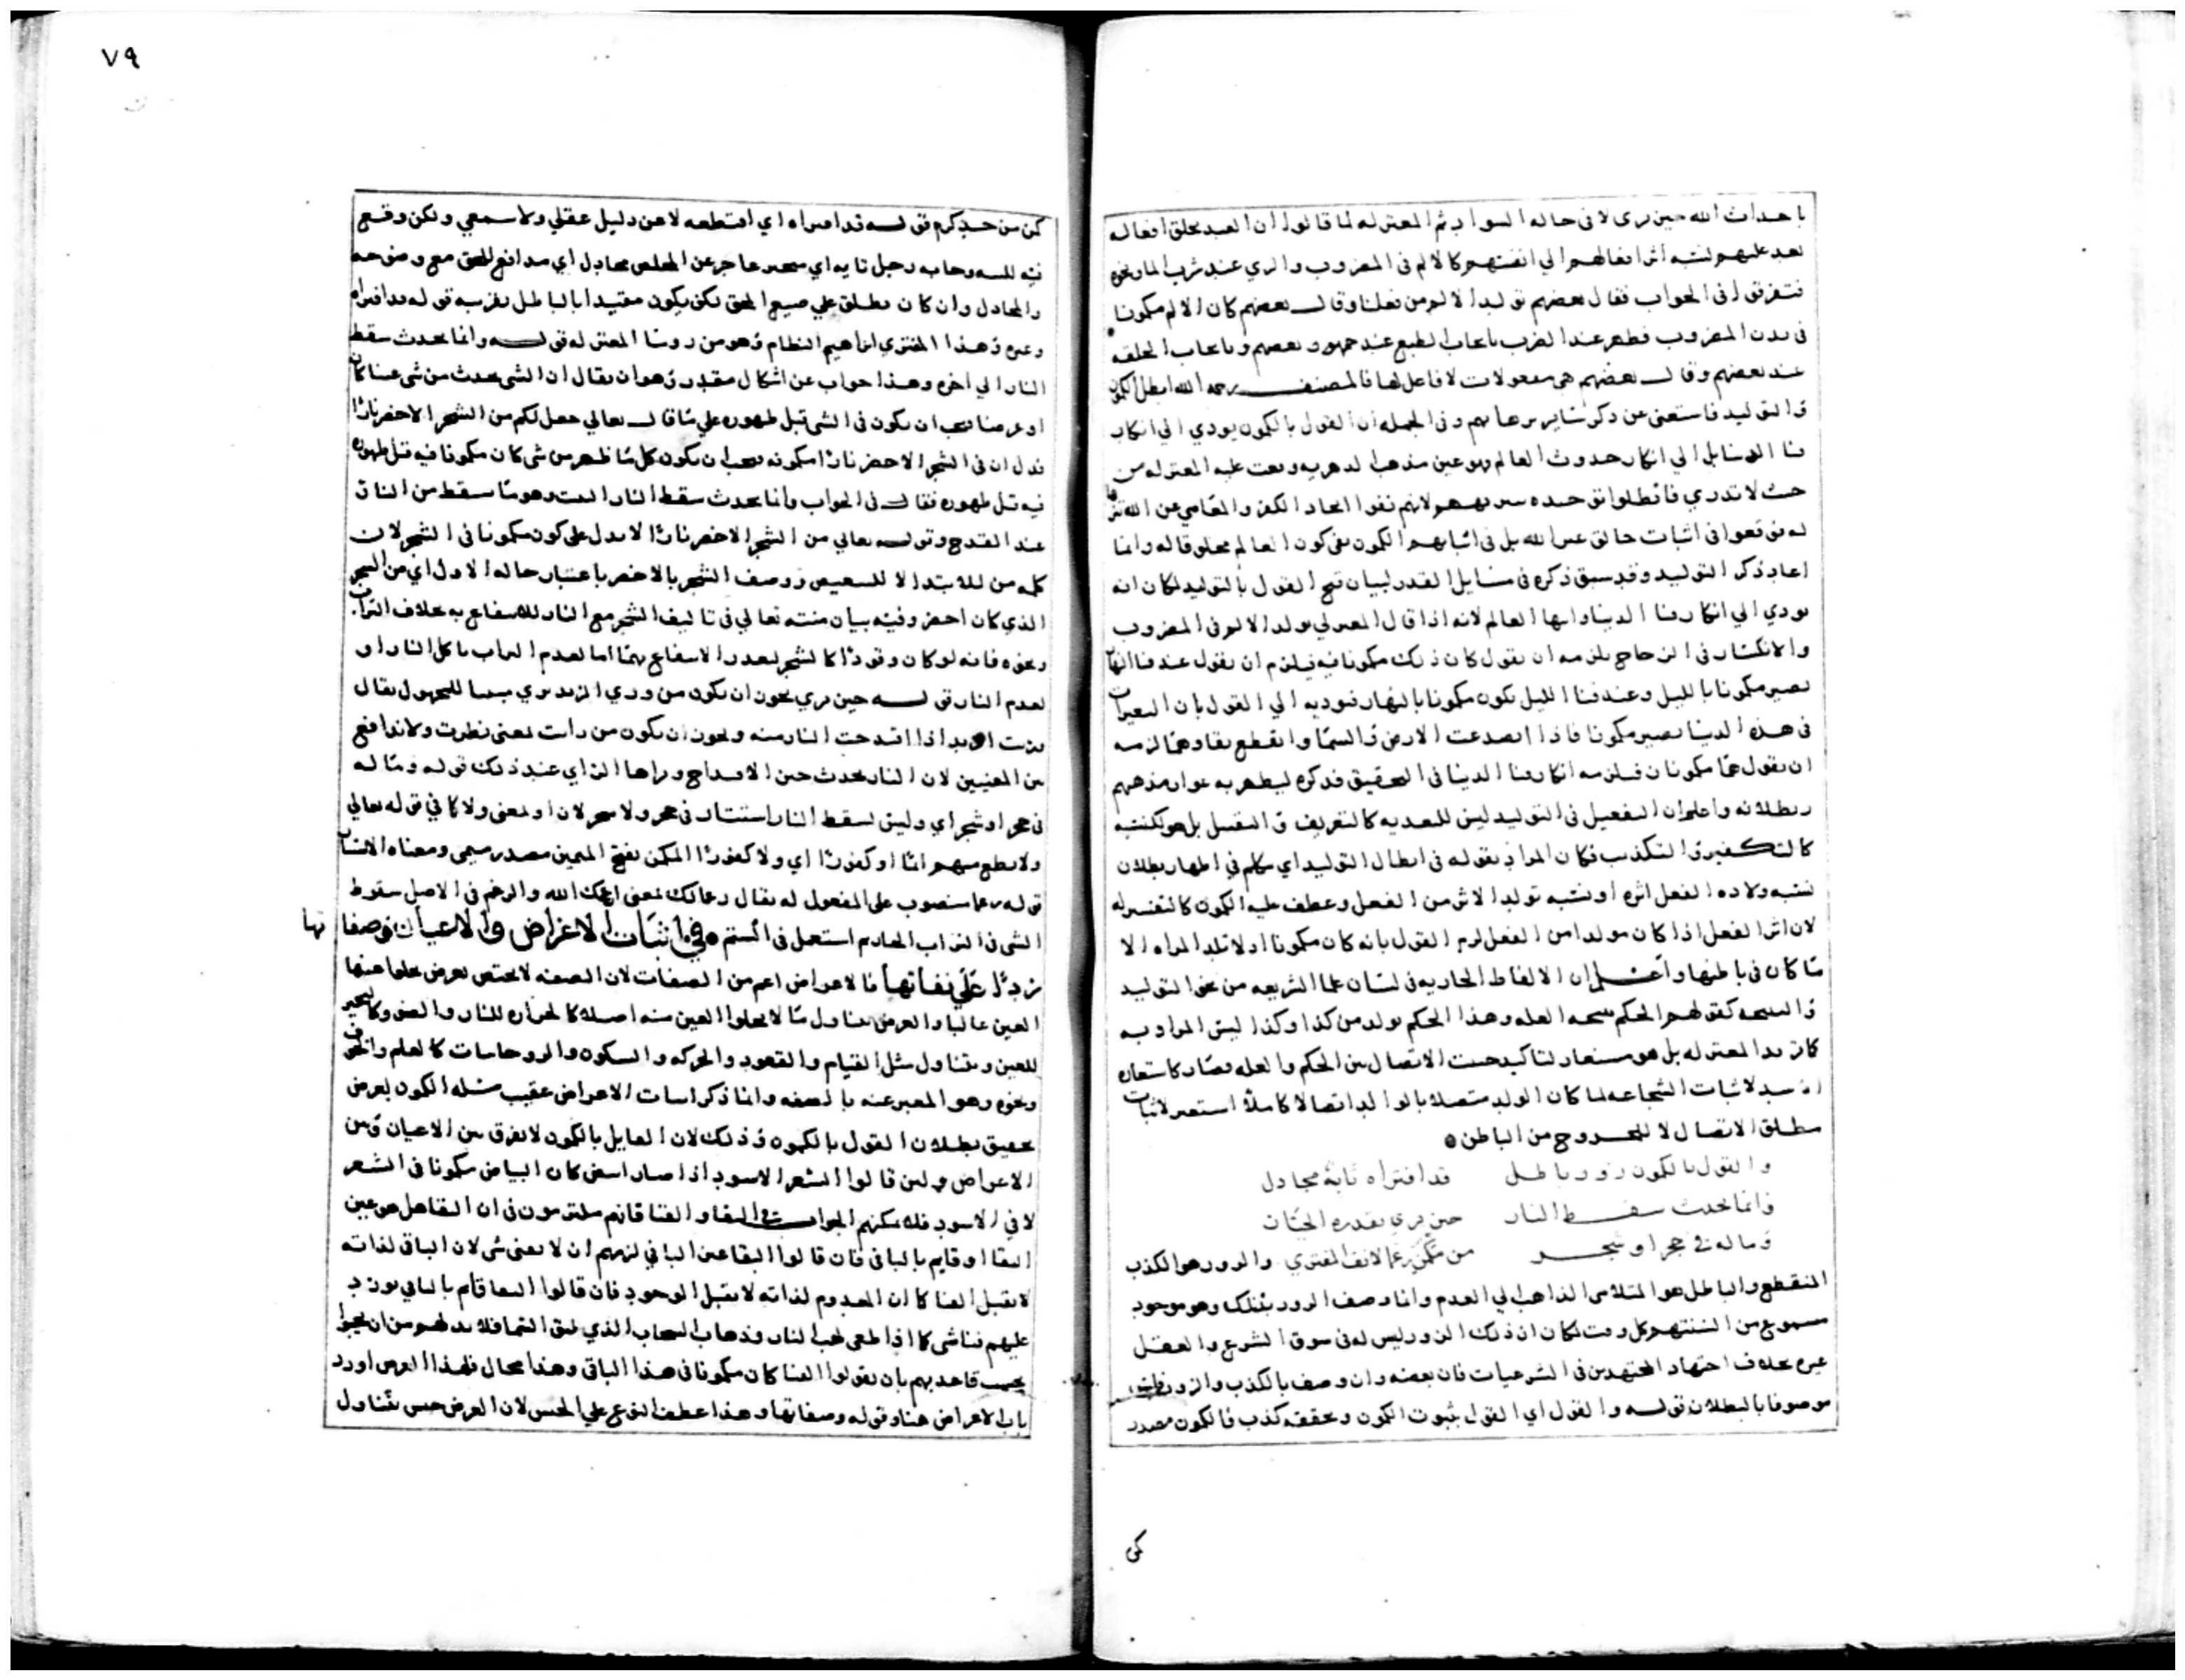 باحداث الله حين نرى لا فى حاله السواد ثم المعتزله لما قالوا ان العبد يخلق افعاله
بعد عليهم نسبه اثر افعالهم الي انفسهم كالالم فى المضروب والري عند شرب الماء ونحوه
فتفرقوا فى الجواب فقال بعضهم توليد الالم من فعلنا وقال بعضهم كان الالم مكمونا
فى بدن المضروب فظهر عند الضرب بايجاب الطبع عند جمهور وبعضهم وبايجاب الخلقه
عند بعضهم وقال بعضهم هى مفعولات لا فاعل لها فالمصنف رحمه الله ابطل الكمون
والتوليد فاستغنى عن ذكر سائر مزعماتهم وفى الجمله ان القول بالكمون يودي الي انكار
فنا الدنيا بل الي انكار حدوث العالم وهو عين مذهب الدهريه وقعت عليه المعتزله من
حيث لا تدري فابطلوا توحيده لانهم نفوا ايجاد الكفر والمعاصي عن الله
له فوقعوا فى اثبات خالق غير الله بل فى اثباتهم الكمون نفى كون العالم مخلوقا له وانما
اعاد ذكر التوليد وقد سبق ذكره فى مسايل القدر لبيان قبح القول بالتوليد لمكان انه
يودي الي انكار فنا الدنيا العالم لانه اذا قال المعتزلي يولد الالم فى المضروب
والانكسار فى الزجاج يلزمه ان يقول كان ذلك مكمونا فيه فيلزم ان يقول عند فنا النهار
يصير مكمونا بالليل وعند فنا الليل يكون مكمونا بالنهار فيوديه الي القول بان التغيرات
فى هذه الدنيا يصير مكمونا فاذا انصدعت الارض والسما وانقطع بقاوهما لزمه
ان يقول هما مكمونان فيلزمه انكار فنا الدنيا فى التحقيق فذكره ليظهر به عوار مذهبهم
وبطلانه واعلم ان التفعيل فى التوليد ليس للتعديه كالتعريف والتفسيل بل هو لنسبه
كالتكفير والتكذيب فكان المراد بقوله فى ابطال التوليد اي نتكلم في اظهار بطلان
نسبه ولاده الفعل اثره او نسبه تولد الاثر من الفعل وعطف عليه الكمون كالتفسير له
لان اثر الفعل اذا كان مولدا من الفعل لزم القول بانه كان مكمونا اذ لا تلد المراه الا
ما كان فى باطنها واعلم ان الالفاظ الجاريه فى لسان علما الشريعه من نحو التوليد
والنتيجه كقولهم الحكم نتيجه العله وهذا الحكم تولد من كذا وكذا ليس المراد به
كما تريد المعتزله بل هو مستعار لتاكيد الاتصال بين الحكم والعله وصار كاستعاره
الاسد لاثبات الشجاعه لما كان الولد متصلا بالوالد اتصالا كاملا استعير لاثبات
مطلق الاتصال لا للخروج من الباطن
والقول بالكمون زور باطل قد افتراه تايه مجادل
وانما يحدث سقط النار حين يري بقدره الجبار
وما له في حجر او شجر من مكمن رغما لانف المفتري والزور هو الكذب
المنقطع والباطل هو المتلاشى الذاهب الي العدم وانما وصف الزور بذلك وهو موجود
مسموع من السنتهم كل وقت لمكان ان ذلك الزور ليس له فى سوق الشرع والعقل
عبره بخلاف اجتهاد المجتهدين فى الشرعيات فان بعضه وان وصف بالكذب والزور
موصوفا بالبطلان قوله والقول اي القول بثبوت الكمون وتحققه كذب فالكمون مصدر
كمن
٧٩
كمن من حد كرم قوله قد افتراه اي اقتطعه لا عن دليل عقلي ولا سمعي ولكن وقع
تايه اي متحير عاجز عن المخلص مجادل اي مدافع للحق مع وضوحه
والمجادل وان كان يطلق علي صيغ المحق لكن يكون مقيدا بالباطل بقرينه قوله قد افتراه
وغيره وهذا المفتري ابراهيم النظام وهو من روسا المعتزله قوله وانما يحدث سقط
النار الي اخره وهذا جواب عن اشكال مقدر وهو ان يقال ان الشى يحدث من شى عينا كان
او عرضا يجب ان يكون فى الشى قبل ظهوره علي ما قال تعالي جعل لكم من الشجر الاخضر نارا
فدل ان فى الشجر الاخضر نارا مكمونه فيجب ان يكون كل ما ظهر من شى كان مكمونا فيه قبل ظهوره
فيه قبل ظهوره فقال فى الجواب وانما يحدث سقط النار البيت وهو ما سقط من النار
عند القدح وقوله تعالي من الشجر الاخضر نارا لا يدل علي كون مكمونا فى الشجر لان
كلمه من للابتدا لا للتبعيض ووصف الشجر بالاخضر باعتبار حاله الاول اي من الشجر
الذي كان اخضر وفيه بيان منته تعالي فى تاليف الشجر مع النار للانتفاع به بخلاف التراب
ونحوه فانه لو كان وقودا كالشجر لتعذر الانتفاع بهما اما لعدم التراب باكل النار او
لعدم النار قوله حين يري يجوز ان يكون من وري الزند يري مبنيا للمجهول يقال
وريت الزند اذا اقدحت النار منه ويجوز ان يكون من رات بمعنى نظرت ولا تدافع
بين المعنيين لان النار يحدث حين الاقداح ويراها الراي عند ذلك قوله وما له
فى حجر او شجر اي وليس لسقط النار استتار فى حجر ولا شجر لان او بمعنى ولا كما في قوله تعالي
ولا تطع منهم اثما او كفورا اي ولا كفورا المكمن بفتح الميمين مصدر ميمى ومعناه الاستتار
قوله رغما منصوب على المفعول له يقال رغما لك بمعنى ارغمك الله والرغم فى الاصل سقوط
الشى فى التراب الحادم استعمل فى الشتم في اثبات الاعراض والاعيان فى صفاتها
زد على نفاتها فالاعراض اعم من الصفات لان الصفه لا يختص بعرض يخلوا عنها
العين غالبا والعرض يتناول ما لا يخلوا العين منه اصلا كالحراره للنار والضو وكالتحيز
للعين ويتناول مثل القيام والقعود والحركه والسكون والروحانيات كالعلم والخوف
ونحوه وهو المعبر عنه بالصفه وانما ذكر اثبات الاعراض عقيب مسله الكمون لغرض
تحقيق بطلان القول بالكمون وذلك لان القايل بالكمون لا يفرق بين الاعيان وبين
الاعراض ولين قالوا الشعر الاسود اذا صار ابيض كان البياض مكمونا فى الشعر
لا في الاسود فلا يمكنهم الجواب في البقا والفنا فانهم ملتزمون فى ان البقا هل هو عين
البقا او قايم بالباقى فان قالوا البقا عين الباقي لزمهم ان لا يفنى شى لان الباقى لذاته
لا يقبل الفنا كما ان المعدوم لذاته لا يقبل الوجود فان قالوا البقا قام بالباقي نورد
عليهم فناشى كما اذا طفى لهب النار وذهاب السحاب الذي طبق السما فلا بد لهم من ان يجيبوا
يجيب قاعدتهم بان يقولوا الفنا كان مكمونا فى هذا الباقى وهذا محال فلهذا الغرض اورد
باب الاعراض هنا وقوله وصفاتها وهذا عطف النوع علي الجنس لان العرض جنس يتناول